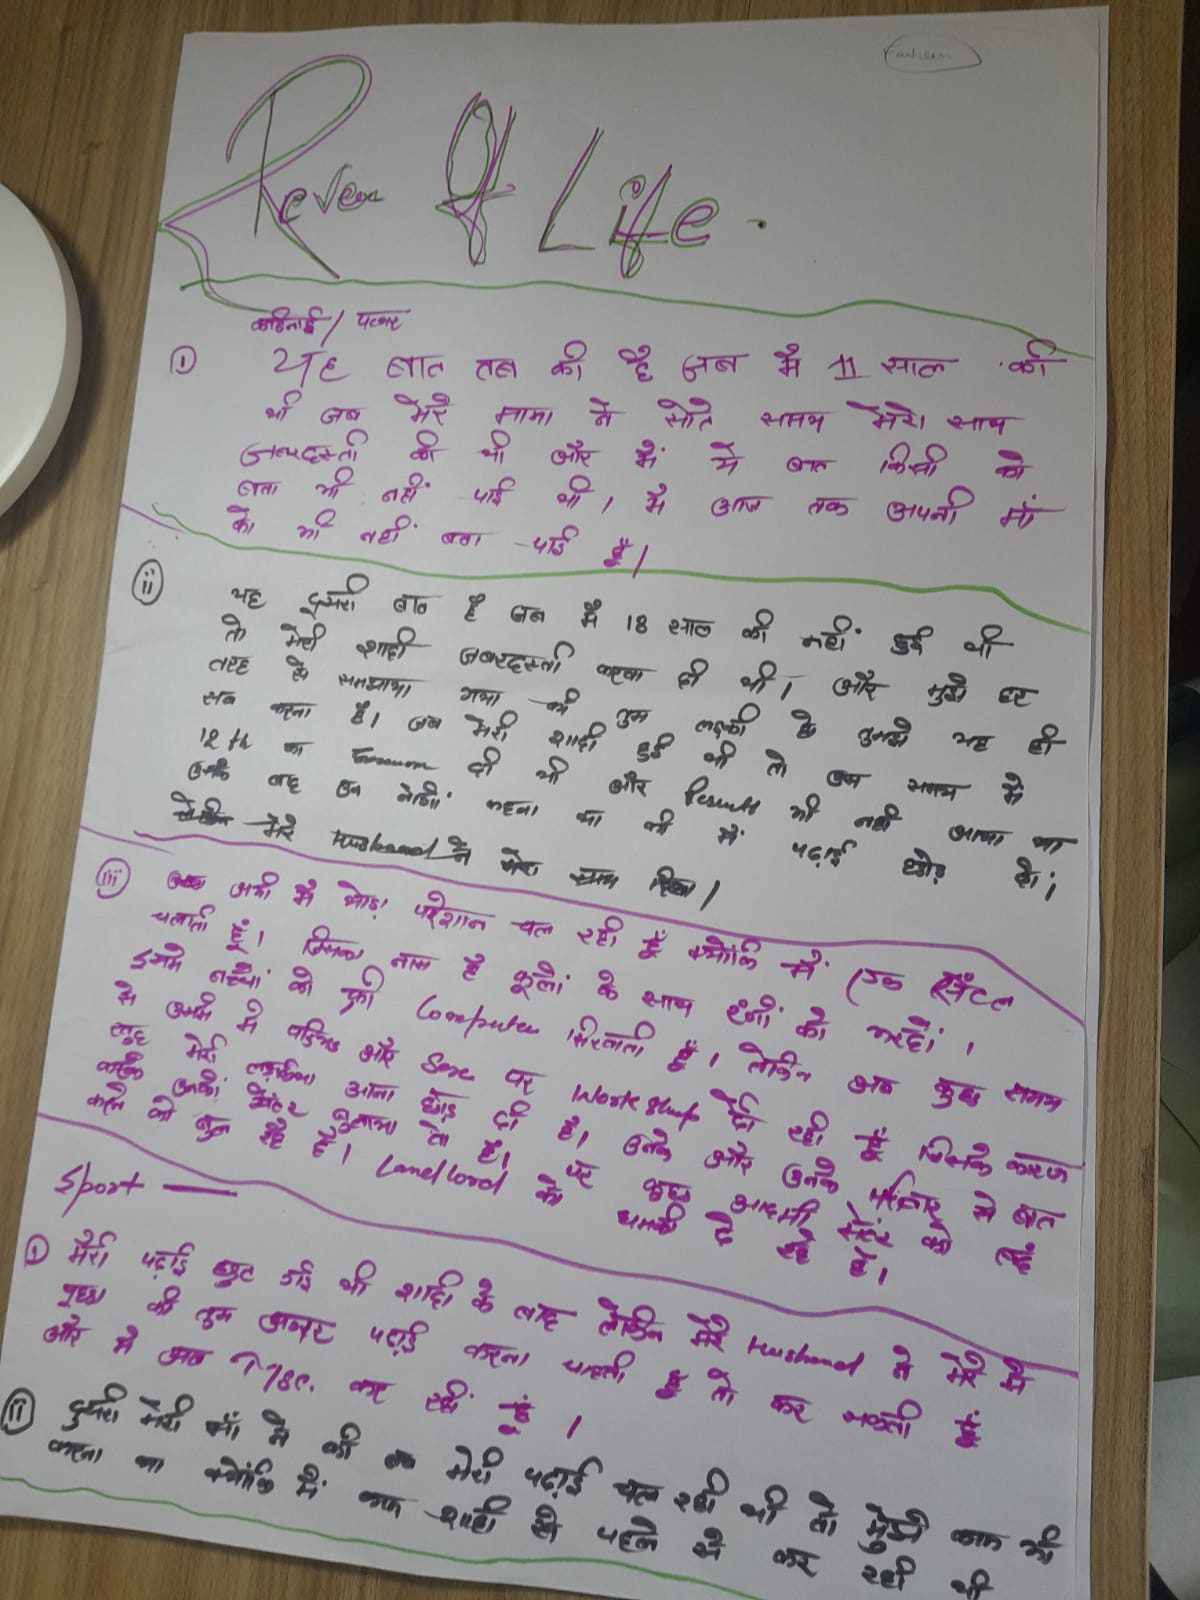 Rever Of Life.
कठिनाई / पत्थर
① यह बात तब की है जब मै 11 साल की
थी जब मेरे मामा ने सोते समय मेरे साथ
जबरदस्ती की थी और मैं ये बात किसी को
बता भी नहीं पाई थी, मै आज तक अपनी माँ
को भी नहीं बता पाई हूँ।
ii यह दूसरी बात है जब मै 18 साल की नहीं हुई थी
तो मेरी शादी जबरदस्ती करवा दी थी। और मुझे हर
तरह से समझाया गया की तुम लड़की हो तुमको यह ही
सब करना है। जब मेरी शादी हुई थी तो उस समय मे
12 th का दी थी और Result भी नहीं आया था
उसके बाद उन लोगों कहना था की मैं पढ़ाई छोड़ दो।
लेकिन मेरे Husband ने मेरा साथ दिया।
iii अभी मै थोड़ा परेशान चल रही हूँ क्योंकि मैं एक सेंटर
चलाती हूँ। जिसका नाम है फूलों के साथ रंगों को भरदो।
इसमे बच्चों को फ्री Computer सिखाती हूँ। लेकिन अब कुछ समय
से अभी मे और Sex पर Work shop दे रही हूँ जिसके कारण
कुछ मेरी लड़किया आना छोड़ दी है। उनके और उनके परिवार से बात
करके उनको सेंटर बुलाया तो है। पर कुछ आदमी सेंटर को बंद
करने को बोल रहे है। Landlord को धमकी दे रहे है।
Sport —
① मेरी पढ़ाई छुट गई थी शादी के बाद लेकिन मेरे Husband ने मेरे से
पूछा की तुम अगर पढ़ाई करना चाहती हूँ तो कर सकती हूँ
और मे अब कर रही हूँ।
ii दुसरा मेरी माँ ने की जब मेरी पढ़ाई चल रही थी तो मुझे काम भी
करना था क्योंकि मैं काम शादी से पहले से कर रही थी